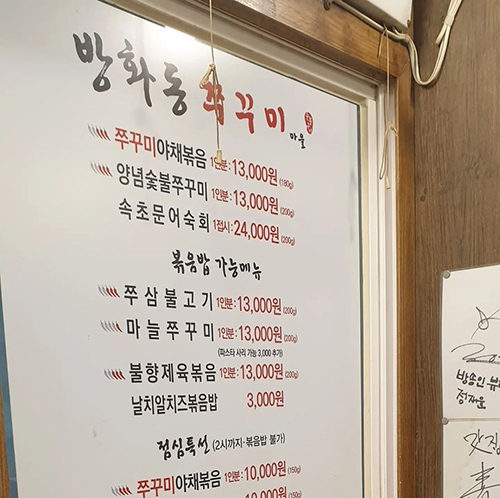 방화동 쭈꾸미 마을
쭈꾸미야채볶음 1인분:13,000원(180g)
양념숯불쭈꾸미 1인분:13,000원(200g)
속초문어숙회 1접시:24,000원(200g)
볶음밥 가능메뉴
쭈삼불고기 1인분:13,000원(200g)
마늘쭈꾸미 1인분:13,000원(200g)
(파스타 사리 가능 3,000 추가)
불향제육볶음 1인분:13,000원(200g)
날치알치즈볶음밥 3,000원
점심특선 (2시까지·볶음밥 불가)
쭈꾸미야채볶음 1인분:10,000원(150g)
방송인
정재윤
맛집